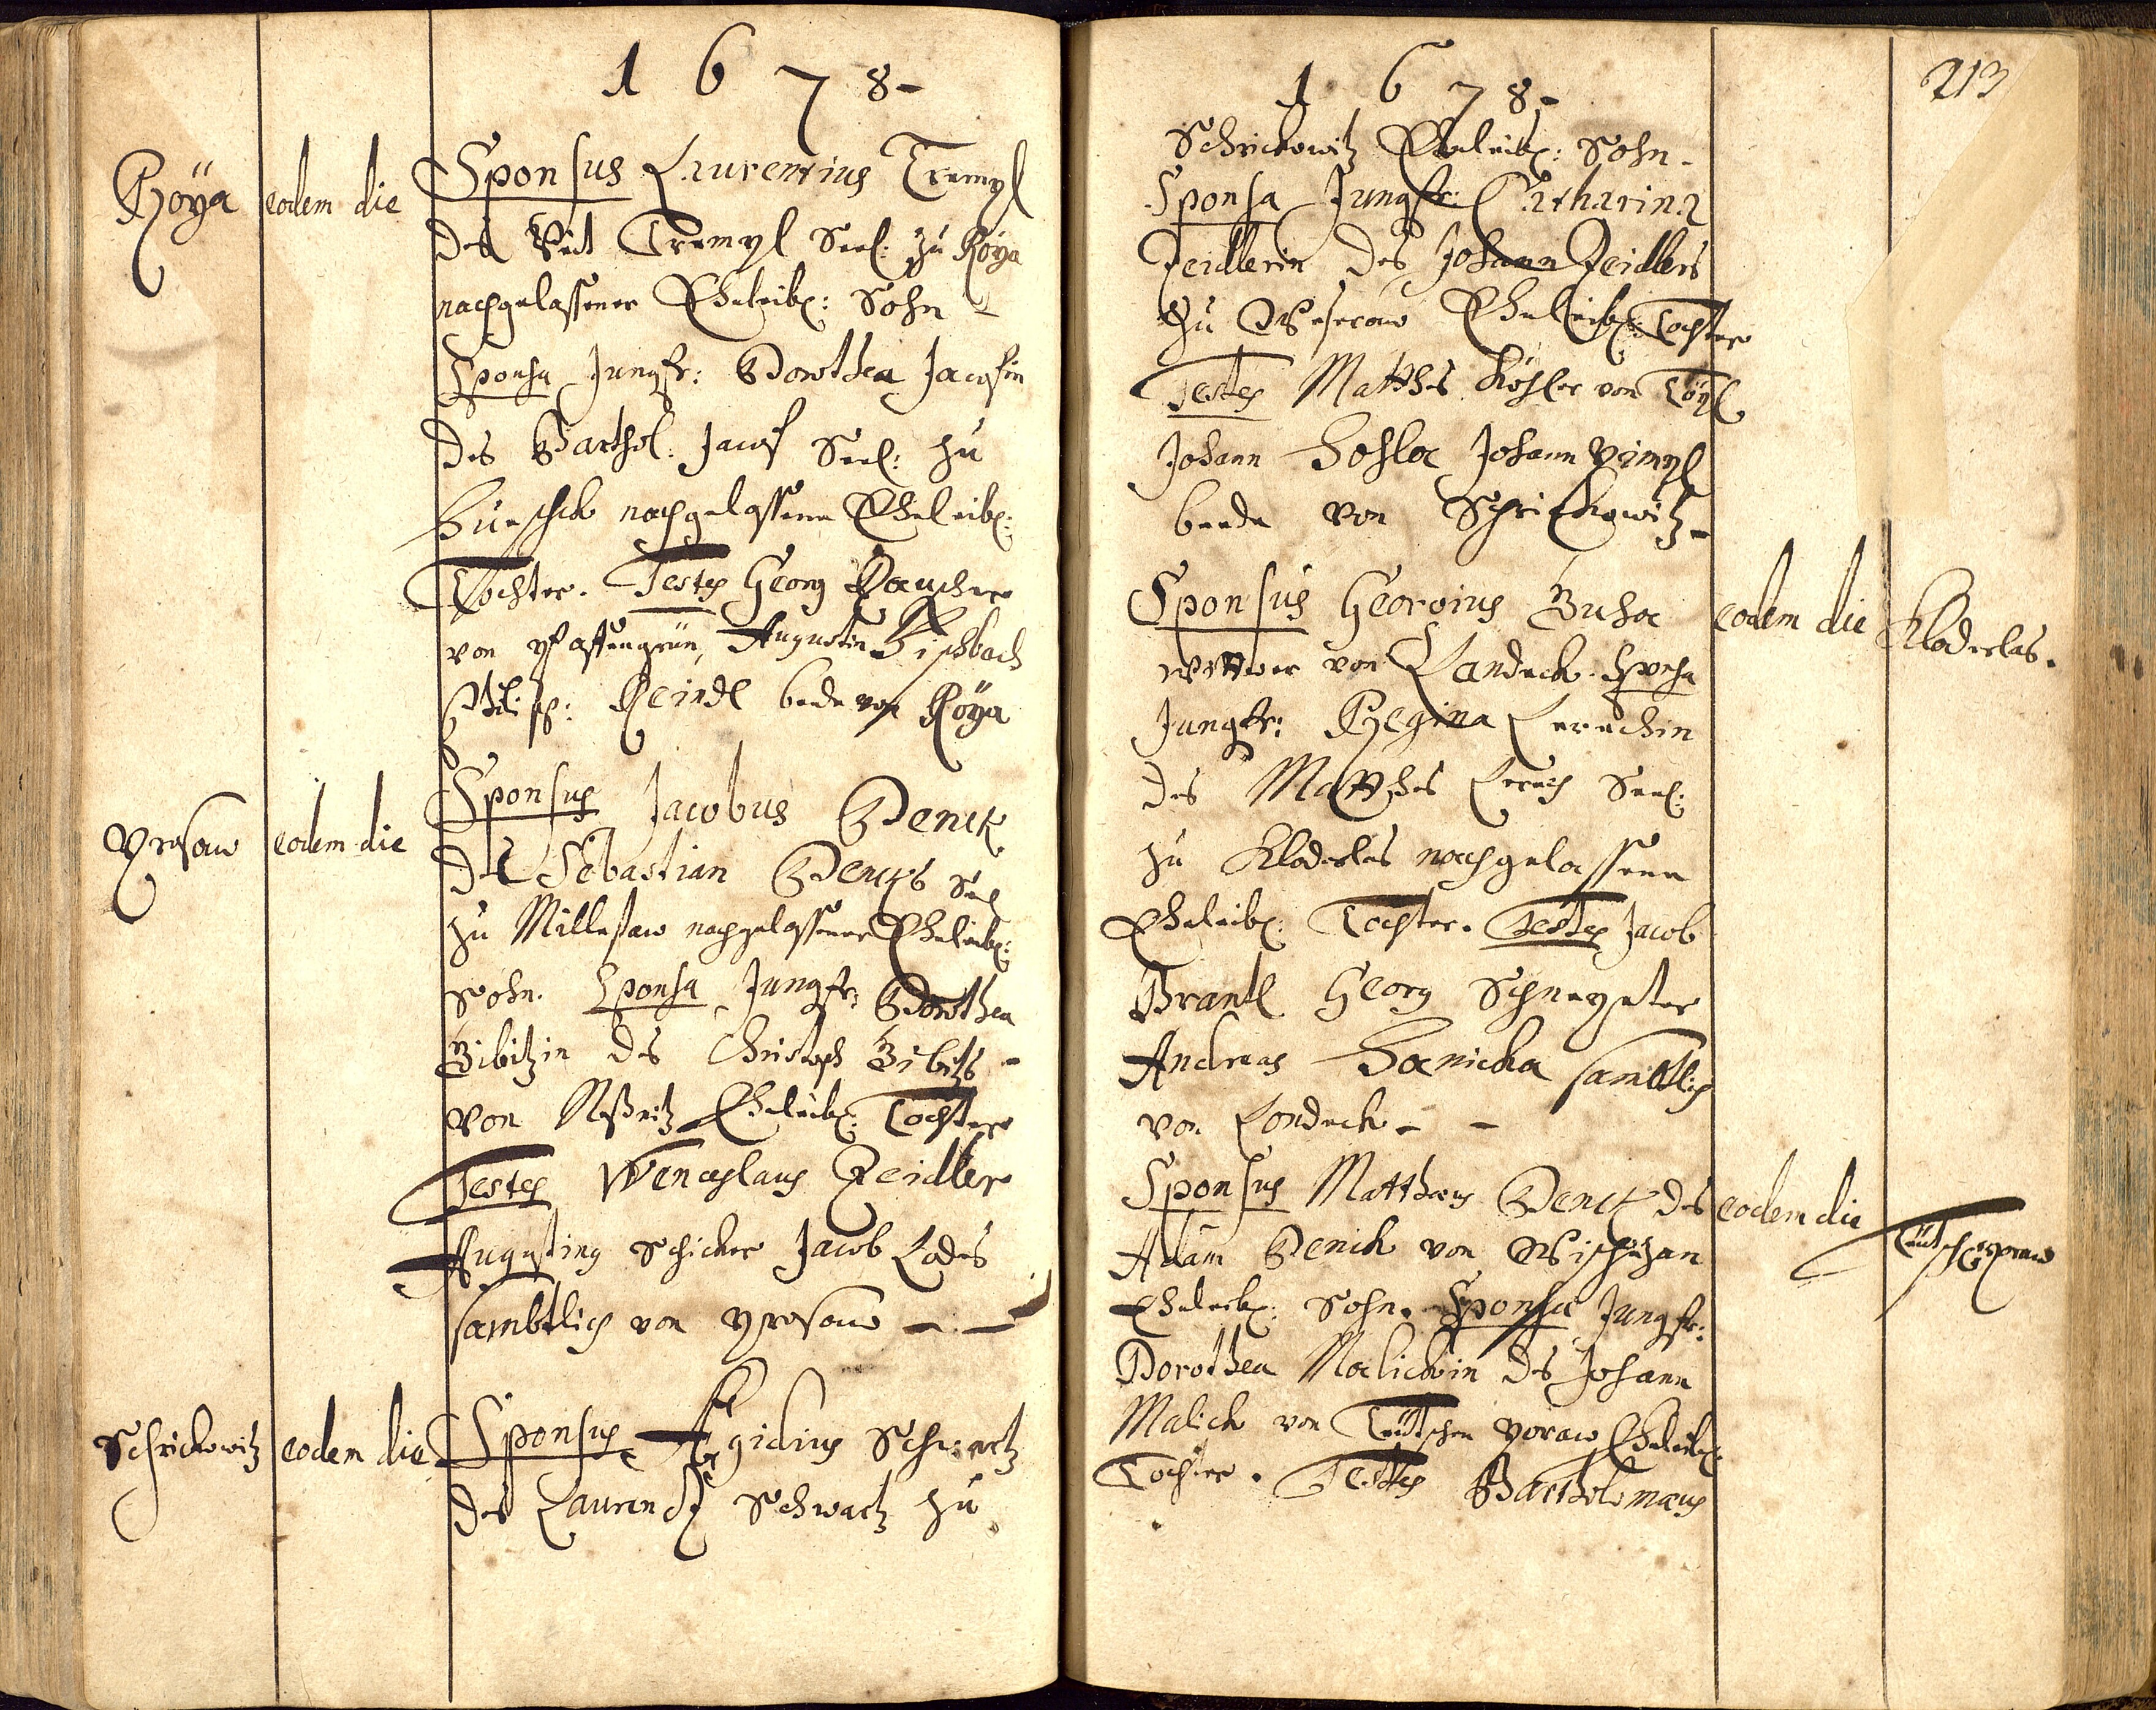 1 6 7 8-
Röÿa
eodem die
Sponsus Laurentius Tremyl
des Veit Tremyl Seel: zu Röÿa
nachgelassener Eheleibl: Sohn -
Sponsa Jungfr: Dorothea Jacosin
des Barthol: Jacos Seel: zu
nachgelassene Eheleibl:
Tochter. Testes Georg
von Pfaffengrün, Augustin Fischbach
Philip: Reindl bede von Röÿa
Prosaw
eodem die
Sponsus Jacobus Denck
des Sebastian Dencks Seel
zu Millesaw nachgelassener Eheleibl:
Sohn. Sponsa Jungfr: Dorothea
Zibitzin des Christoph Zibitzs -
von Eheleibl: Tochter
Testes Wenceslaus Zeidler
Augusting Schicker Jacob Lodes
sambtlich von Prosaw - -
Schrickowitz
eodem die
Sponsus Ægidius Schwartz
des Laurentz Schwartz zu
213
1 6 7 8-
Schrickowitz Eheleibl: Sohn -
Sponsa Jungfr: Catharina
Zeidlerin des Johann Zeidlers
zu Weserow Eheleibl: Tochter
Testes Matthes Köhler von Töÿl
Johann Johann
beede von Schrickowitz -
Sponsus Georgius
eodem die
Kladerlas.
wittwer von Landeck. Sponsa
Jungfr: Regina Lerachin
des Matthes Lerach Seel:
zu Kladerlas nachgelassene
Eheleibl: Tochter. Testes Jacob
Brantl Georg
Andreas sambtlich
von Landeck - -
Sponsus Matthæus Denck des
eodem die
Adam Denck von Wischezan
Eheleibl: Sohn. Sponsa Jungfr:
Dorothea Malickin des Johann
Malick von Teütschen Poraw Eheleibl:
Tochter. Testes Bartholomæus